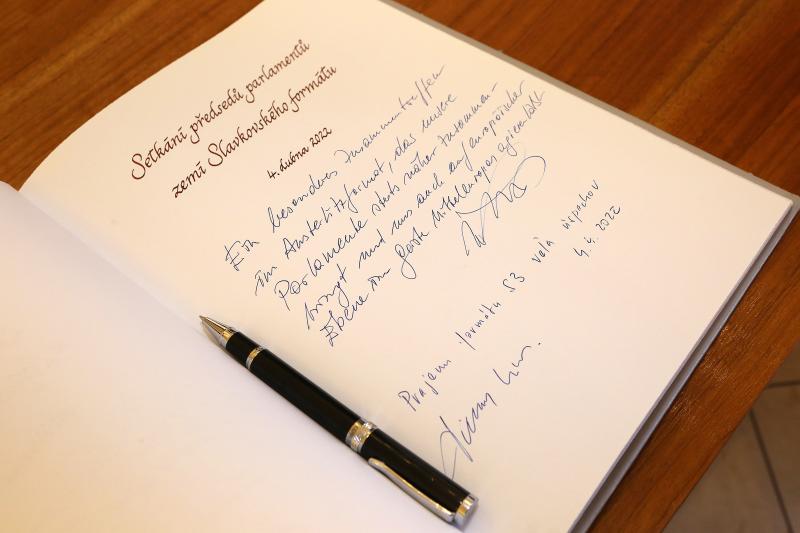 Setkání předsedů parlamentů
zemí Slavkovského formátu
4. dubna 2022
Ein besonderes Zusammentreffen
im Austerlitzformat, das unsere
Parlamente stets näher zusammen-
bringt und uns auch auf europäischer
Ebene im Geiste Mitteleuropas agieren lässt
Prajem formátu S3 veľa úspechov
4.4.2022